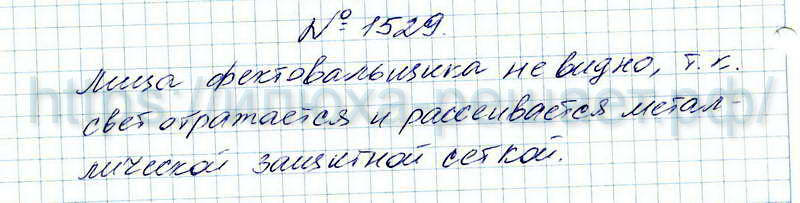 № 1529.
Лица фехтовальщика не видно, т.к.
свет отражается и рассеивается метал-
лической защитной сеткой.